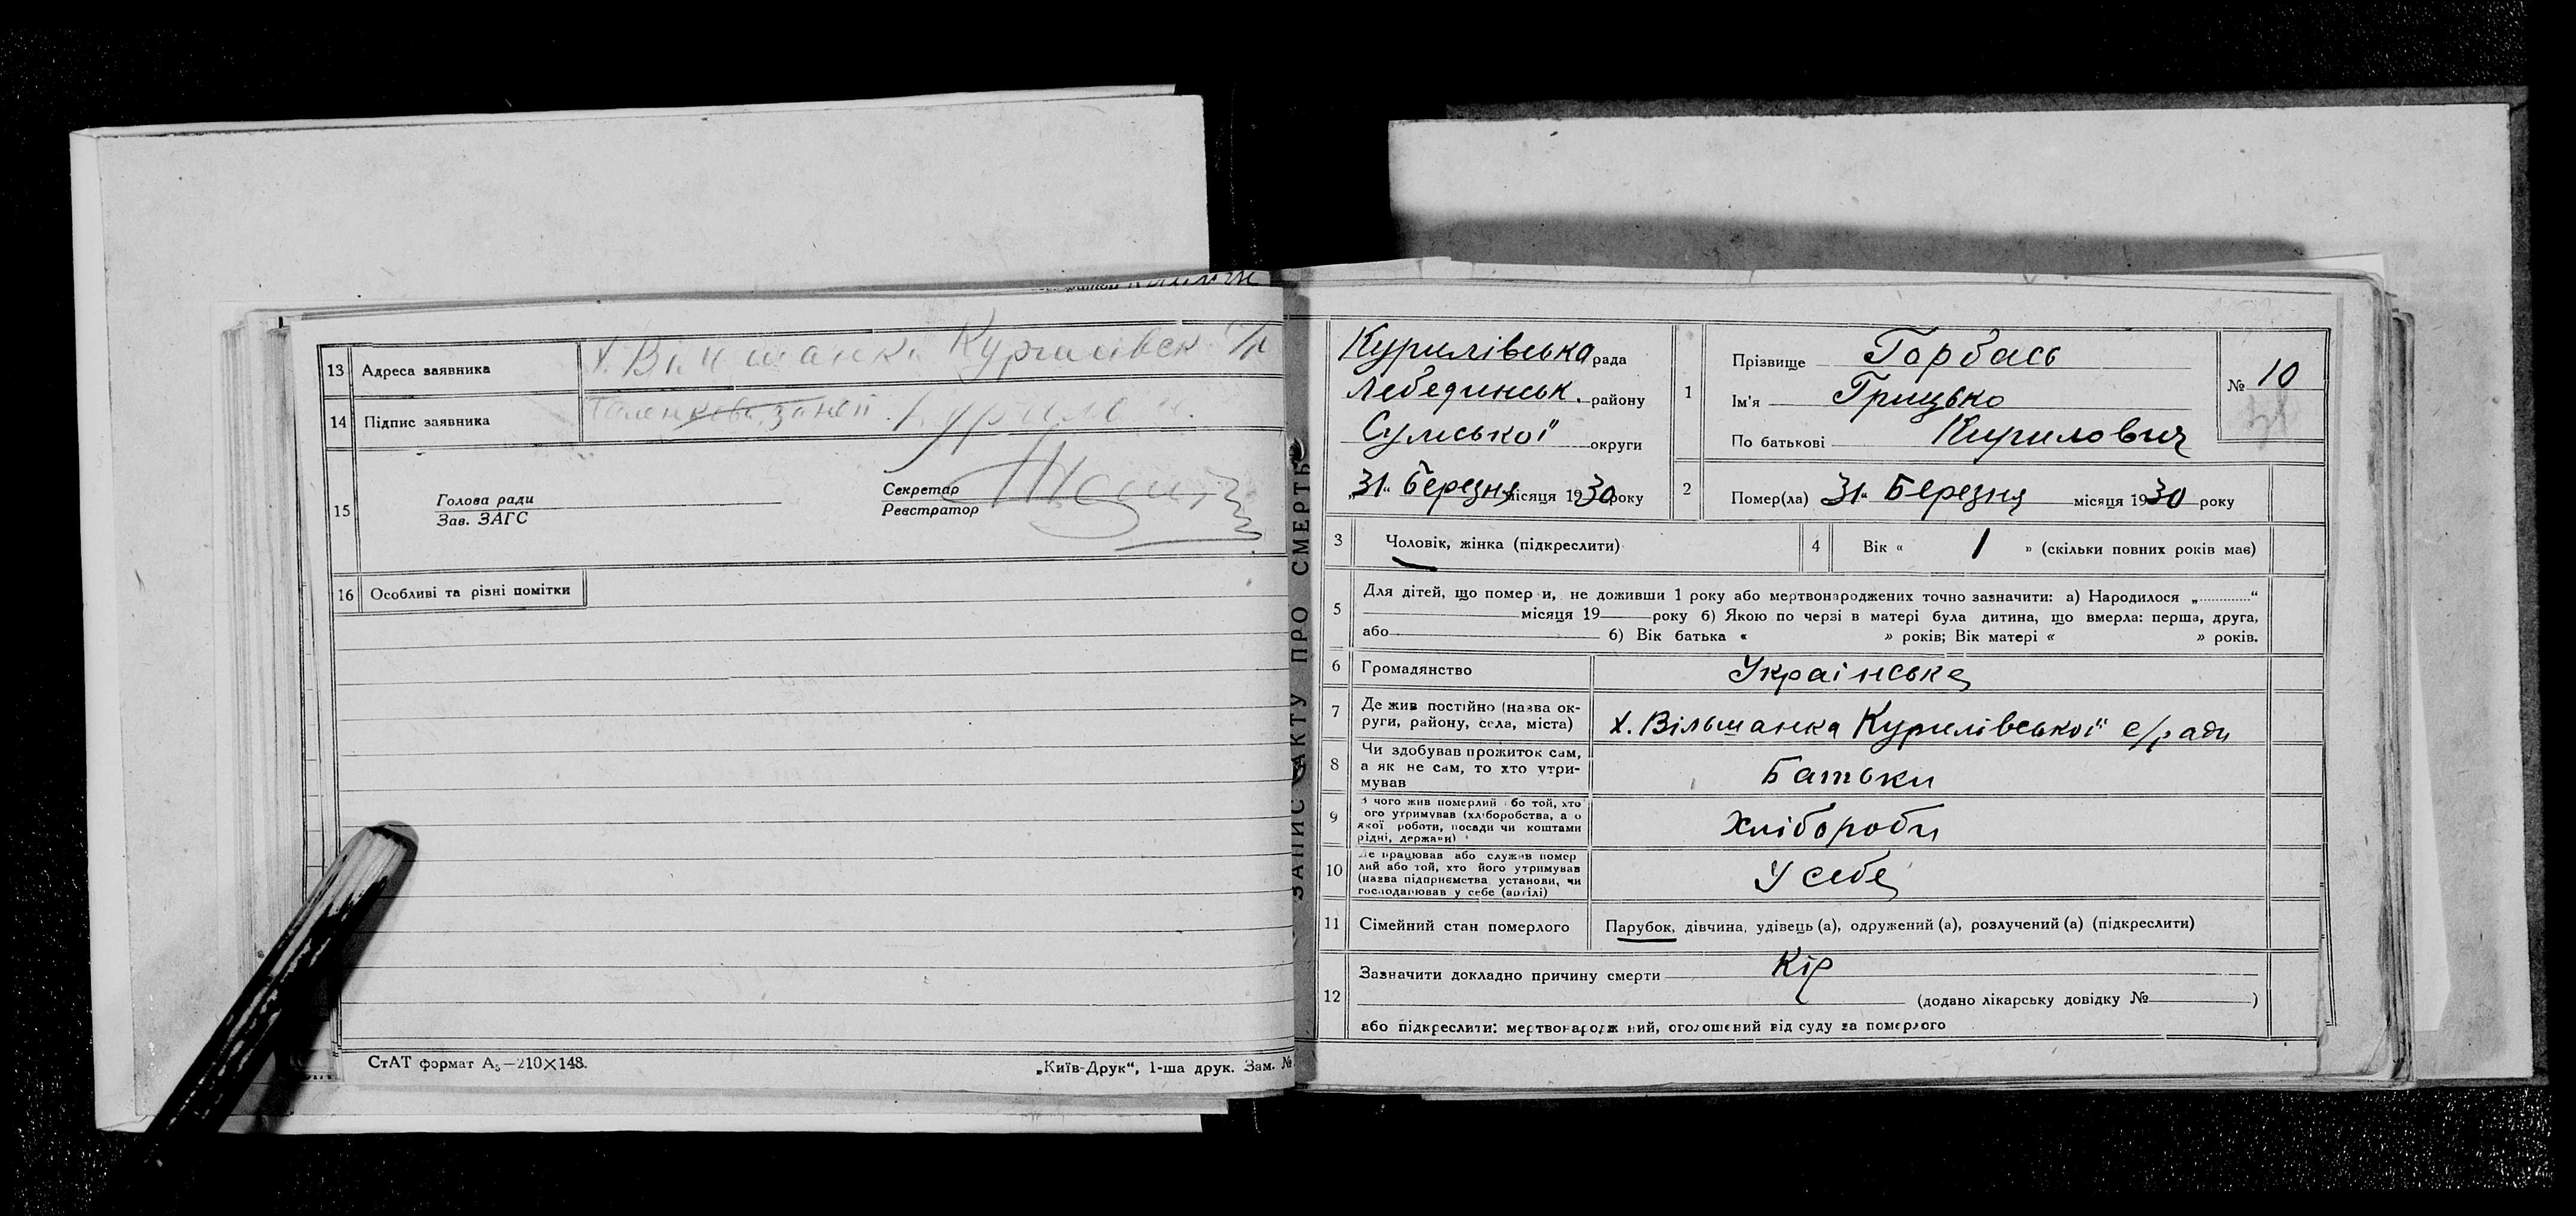 13 Адреса заявника х. Вільшанка Курилівск с/р
14 Підпис заявника
15 Голова ради
Зав. ЗАГС
Секретар
Реєстратор
16 Особливі та різні помітки
СтАТ формат А₅—210×148.
„Київ-Друк“, 1-ша друк. Зам. №
ЗАПИС АКТУ ПРО СМЕРТЬ
Курилівська рада
Лебединськ. району
Сумської округи
„31“ Березня місяця 1930 року
1 Прізвище Горбась
Ім'я Грицько
По батькові Кирилович
№ 10
2 Помер(ла) 31“ Березня місяця 1930 року
3 Чоловік, жінка (підкреслити)
4 Вік « 1 » (скільки повних років має)
5 Для дітей, що померли, не доживши 1 року або мертвонароджених точно зазначити: а) Народилося „............“
місяця 19 року б) Якою по черзі в матері була дитина, що вмерла: перша, друга,
або 6) Вік батька « » років; Вік матері « » років.
6 Громадянство Українське
7 Де жив постійно (назва ок-
руги, району, села, міста) х. Вільшанка Курилівської с/ради
8 Чи здобував прожиток сам,
а як не сам, то хто утри-
мував Батьки
9 З чого жив померлий або той, хто
його утримував (хліборобства, або
якої роботи, посади чи коштами
рідні, держави) Хлібороби
10 Де працював або служив помер
лий або той, хто його утримував
(назва підприємства установи, чи
господарював у себе (артілі) У себе
11 Сімейний стан померлого Парубок, дівчина, удівець (а), одружений (а), розлучений (а) (підкреслити)
12 Зазначити докладно причину смерти Кір
(додано лікарську довідку № )
або підкреслити: мертвонароджений, оголошений від суду за померлого